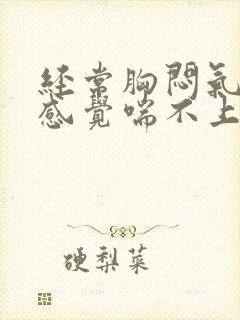 经常胸悶氣
感覺喘不上
硬梨菜